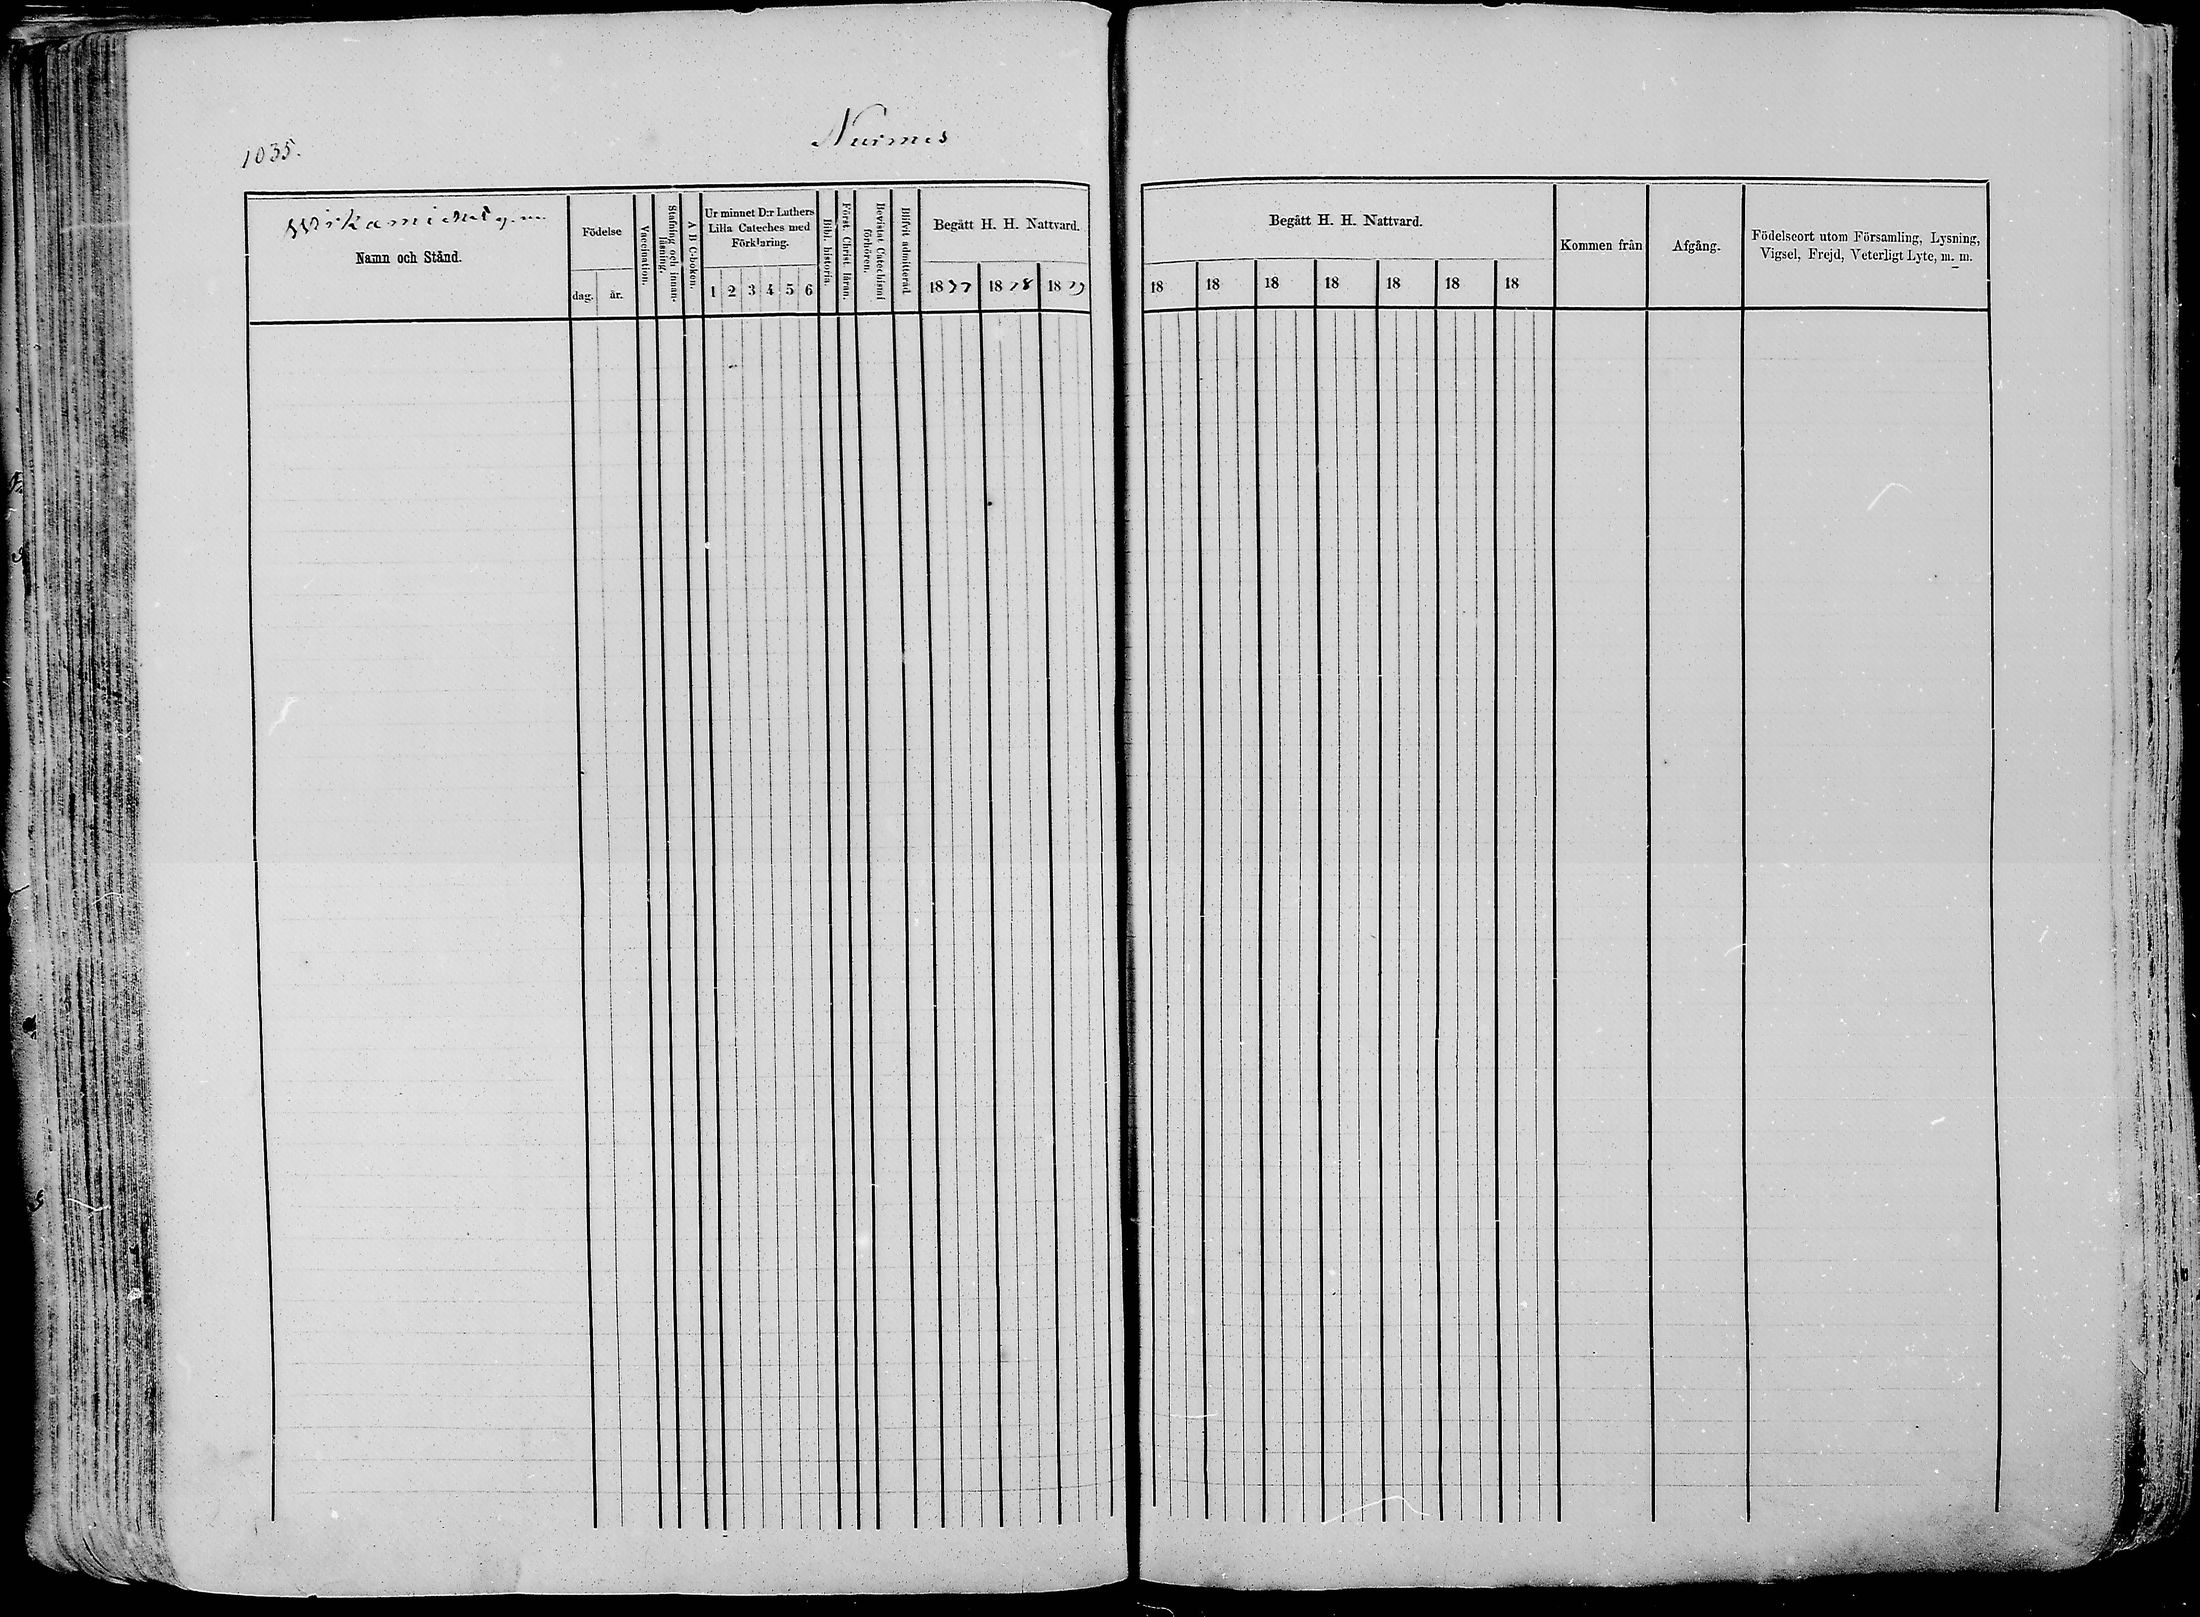 1035.
Nurmes
Namn och Stånd.
Födelse
dag.
år.
Vaccination.
Stafning och innan-
läsning.
A B C-boken.
Ur minnet D:r Luthers
Lilla Cateches med
Förklaring.
1 2 3 4 5 6
Bibl. historia.
Först. Christ. läran.
Bevistat Catechismi
förhören.
Blifvit admitterad.
Begått H. H. Nattvard.
1877 1878 1879
Begått H. H. Nattvard.
18 18 18 18 18 18 18
Kommen från
Afgång.
Födelseort utom Församling, Lysning,
Vigsel, Frejd, Veterligt Lyte, m. m.